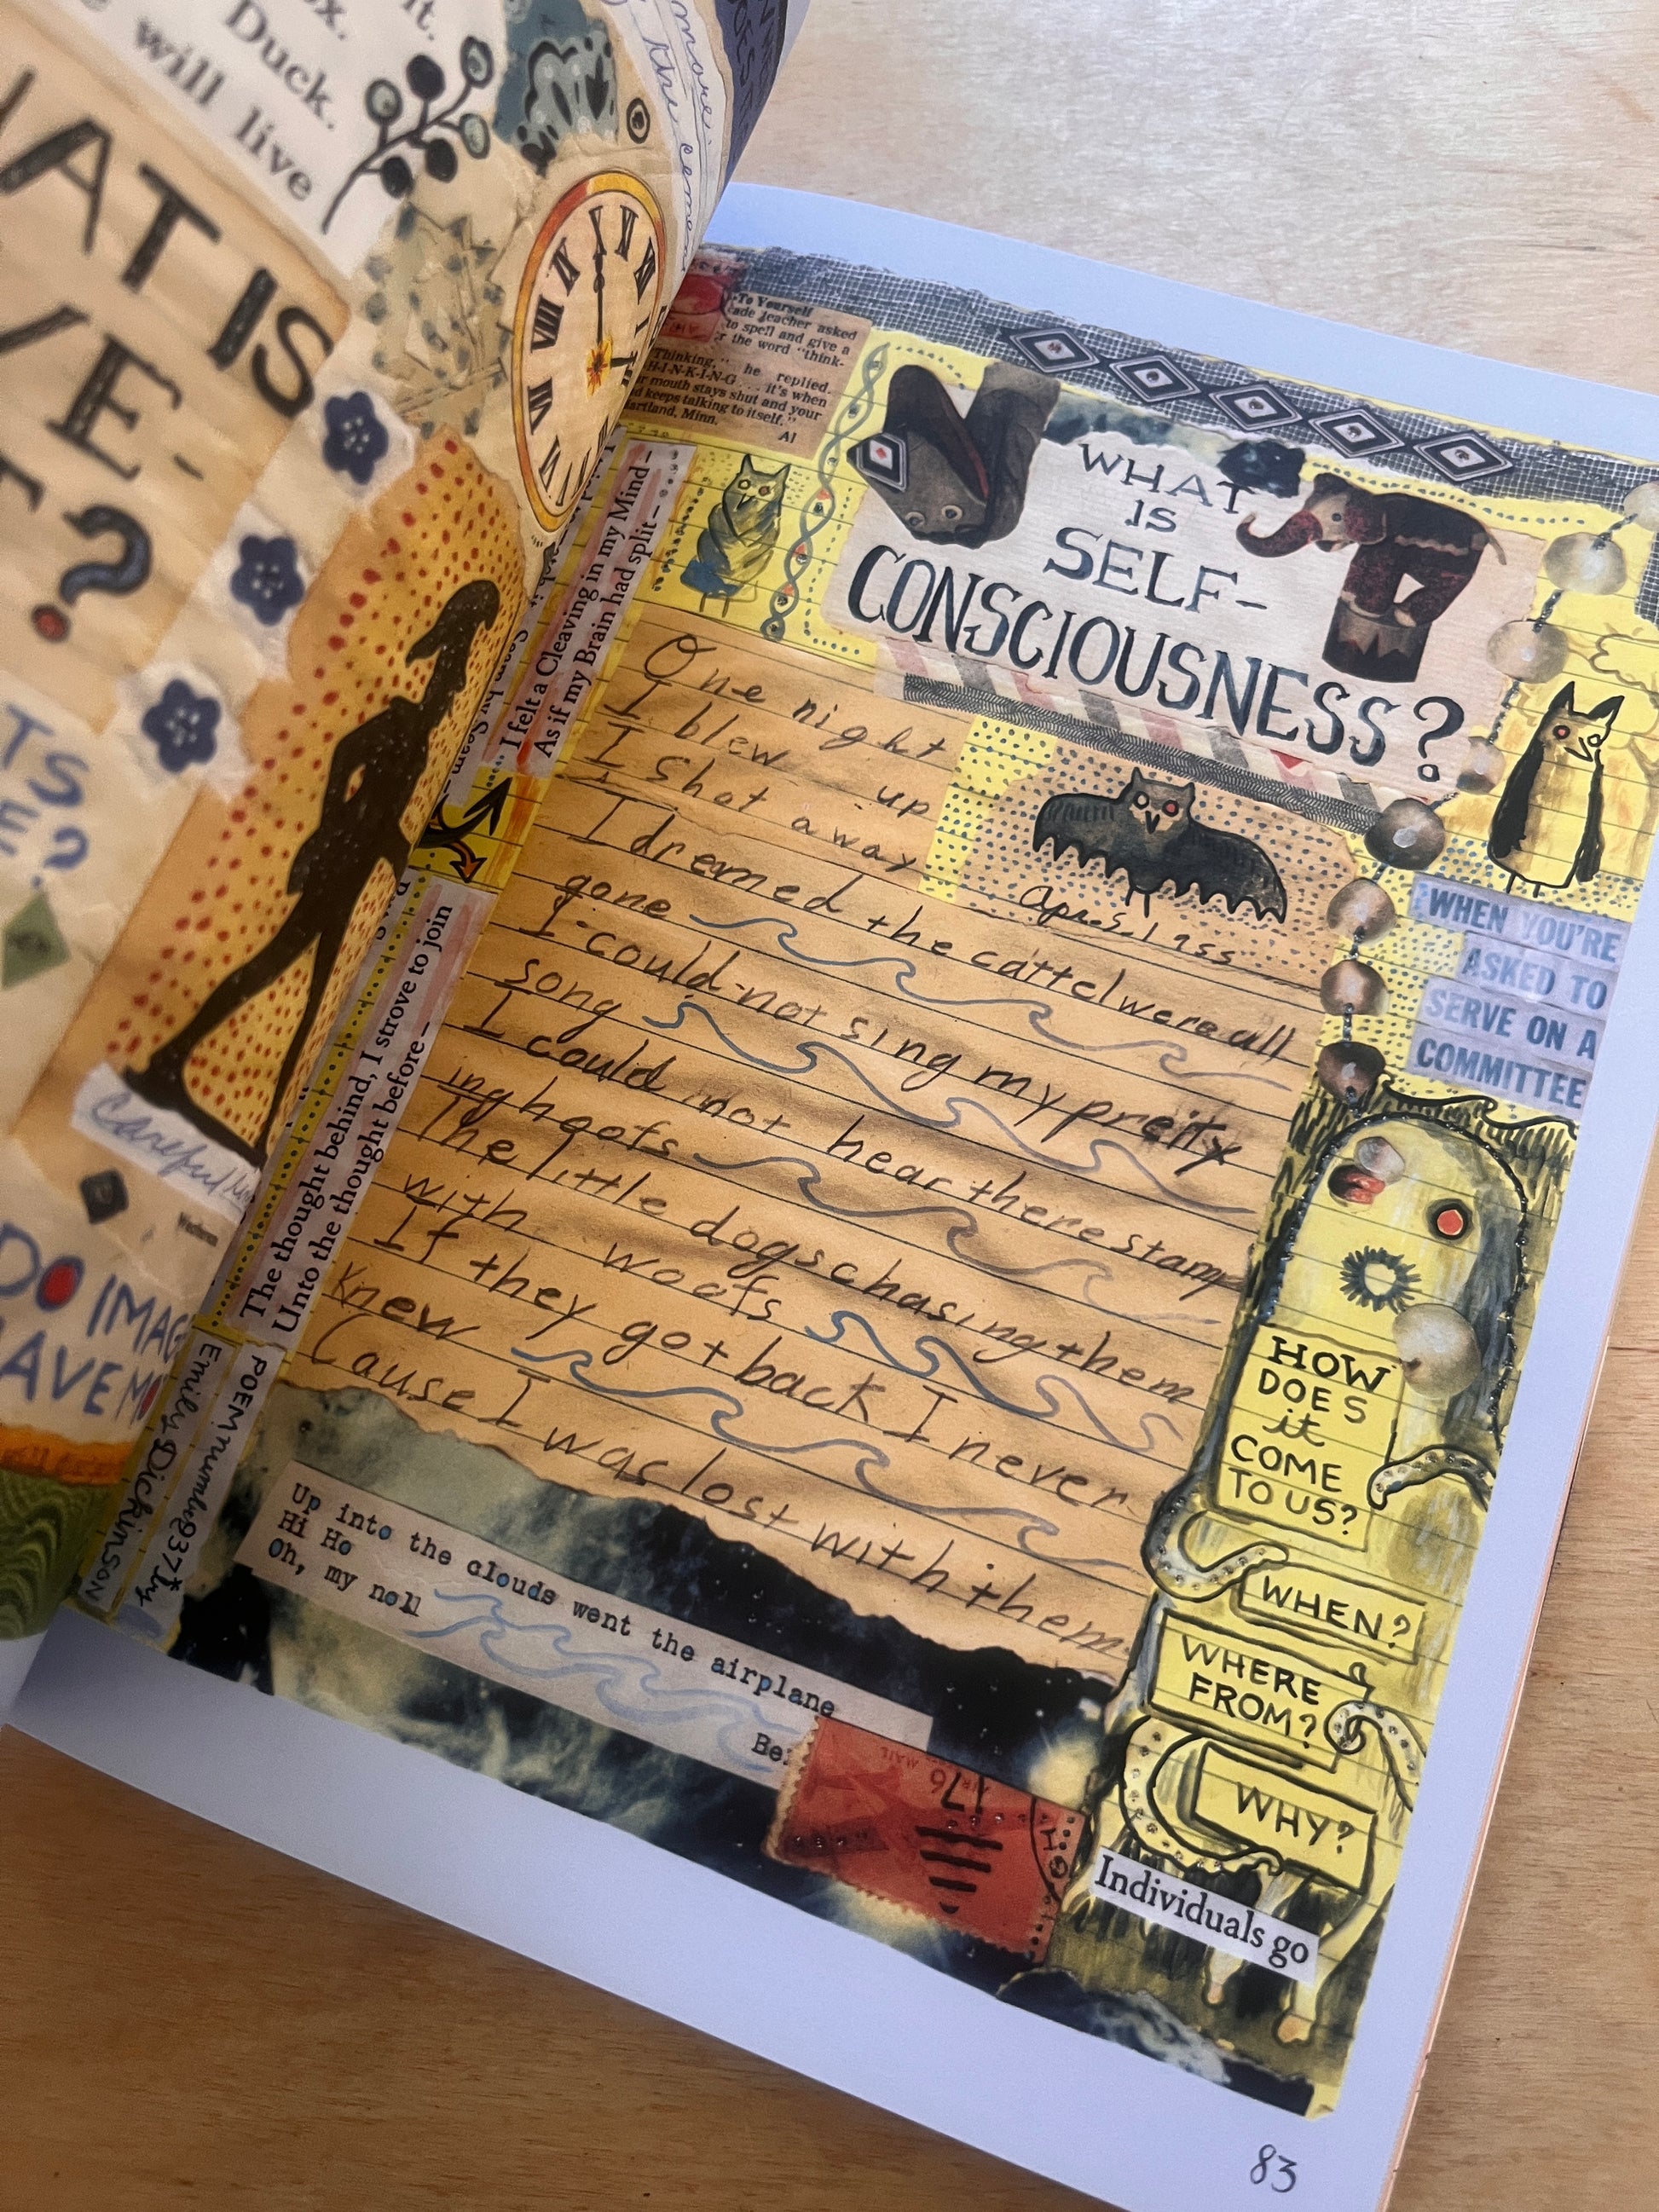 it.
ox.
Duck.
will live
AT IS
E-
?
TS
E?
Careful
DO IMAG
AVE MO
more
the ceme
To Yourself
cade teacher asked
to spell and give a
r the word "think-
Thinking," he replied.
H-I-N-K-I-N-G . . . it's when
r mouth stays shut and your
d keeps talking to itself."
artland, Minn.
Al
Seam by Seam
I felt a Cleaving in my Mind –
As if my Brain had split –
The thought behind, I strove to join
Unto the thought before –
POEM number 937* by
Emily Dickinson
WHAT
IS
SELF-
CONSCIOUSNESS?
One night
I blew up
I shot away
Apr. 5. 1955
I dremed the cattel were all
gone
I could not sing my preity
song
I could not hear there stamp
ing hoofs
The little dogs chasing them
with woofs
If they got back I never
knew
Cause I was lost with them.
Up into the clouds went the airplane
Hi Ho
Oh, my noll
Be
17
76
WHEN YOU'RE
ASKED TO
SERVE ON A
COMMITTEE
HOW
DOES
it
COME
TO US?
WHEN?
WHERE
FROM?
WHY?
Individuals go
83